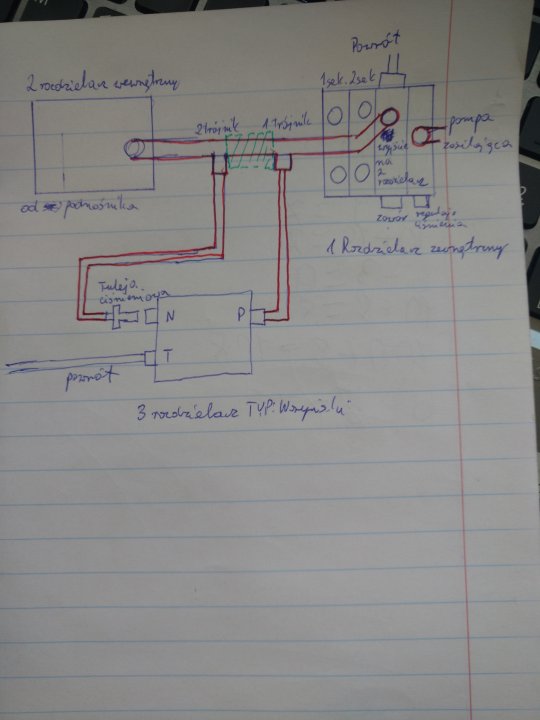 Powrót
1 sek. 2 sek
2 rozdzielacz wewnętrzny
2 trójnik
1 trójnik
pompa
zasilająca
wyjście
na
2
rozdzielacz
od podnośnika
zawór
regulacji
ciśnienia
1 Rozdzielacz zewnętrzny
Tuleja
ciśnieniowa
N
P
T
powrót
3 rozdzielacz TYP: